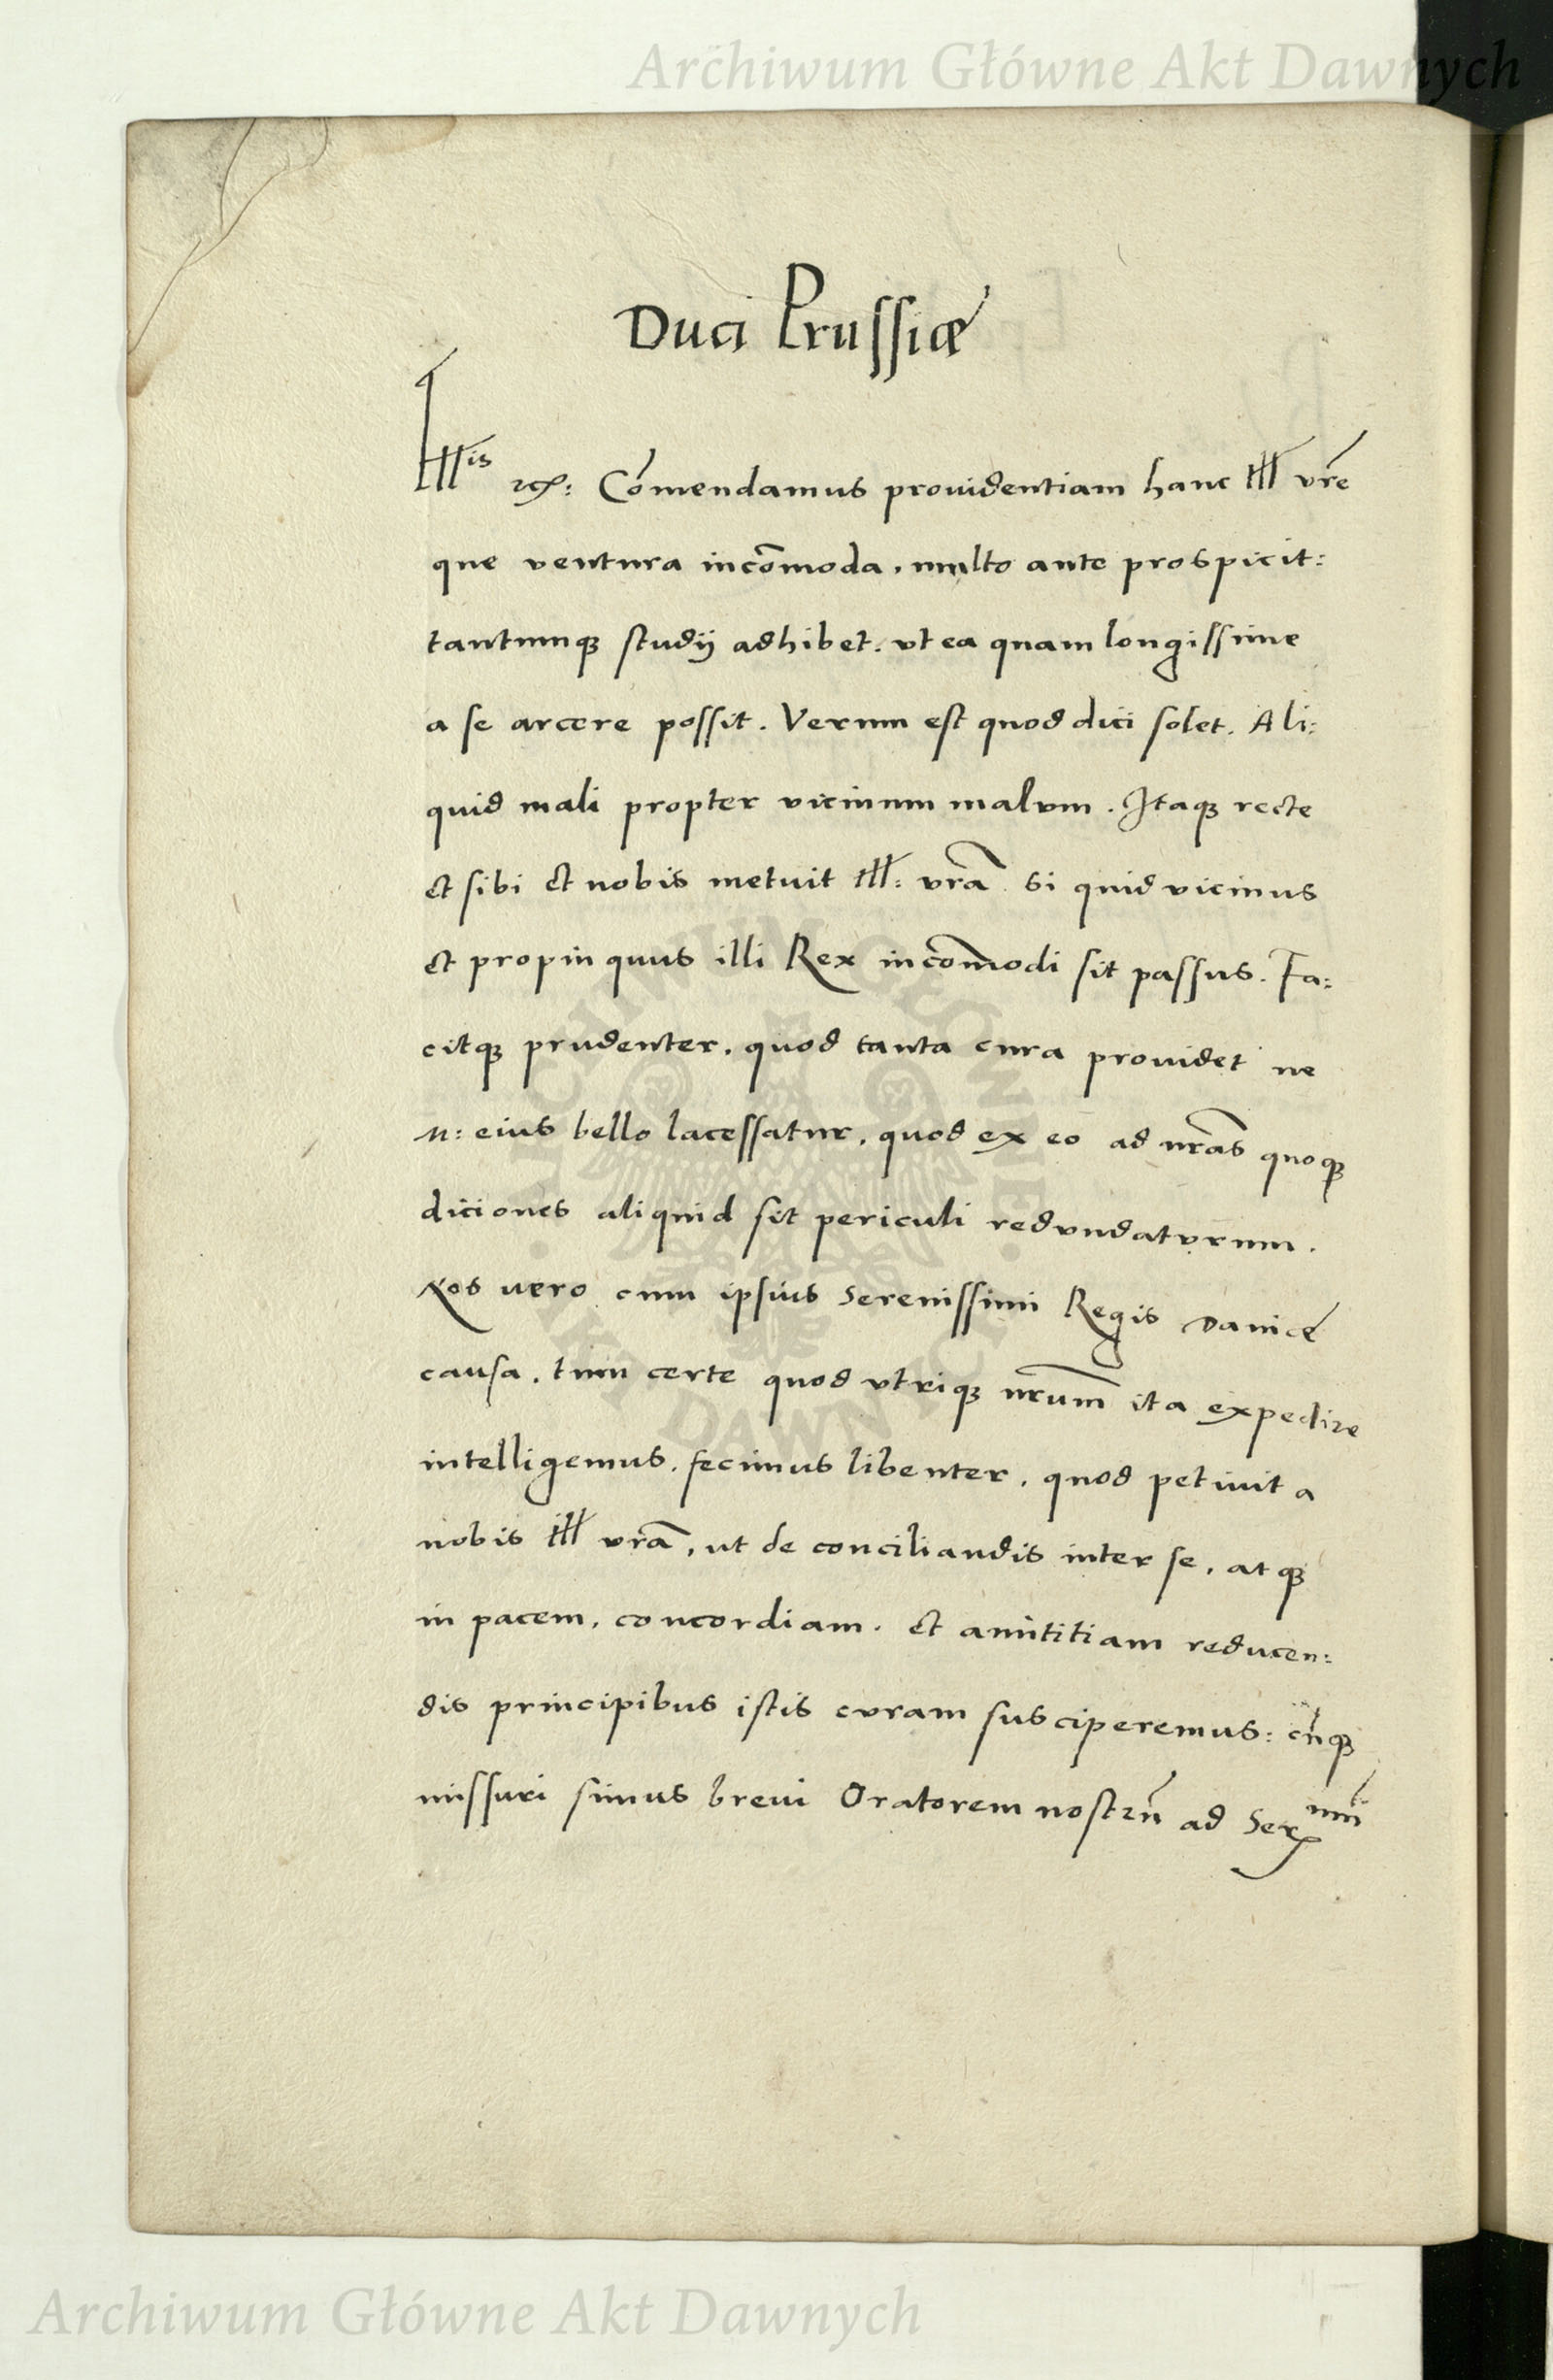 Archiwum Główne Akt Dawnych
Duci Prussiæ
Illis etc: Cōmendamus prouidentiam hanc Ill vrē
que ventura incōmoda, multo ante prospicit:
tantumq̨ studij adhibet: vt ea quam longissime
a se arcere possit. Verum est quod dici solet. Ali:
quid mali propter vicinum malum. Itaq̨ recte
et sibi et nobis metuit Ill: vrā si quid vicinus
et propinquus illi Rex incōmodi sit passus. Fa:
citq̨ prudenter, quod tanta cura prouidet ne
N: eius bello lacessatur, quod ex eo ad nrās quoq̨
diciones aliquid sit periculi redundaturum.
Nos uero cum ipsius Serenissimi Regis Danicę
causa, tum certe quod vtriq̨ nrūm ita expedire
intelligemus, fecimus libenter, quod petiuit a
nobis Ill vrā, ut de conciliandis inter se, atq̨
in pacem, concordiam, et amititiam reducen:
dis principibus istis curam susciperemus: cūq̨
missuri simus breui Oratorem nostrū ad Ser
Archiwum Główne Akt Dawnych